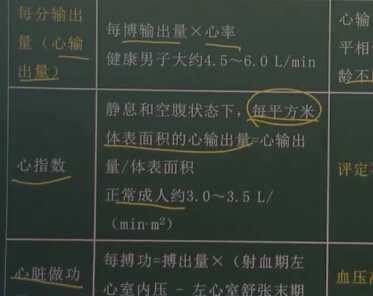 每分输出
量（心输
出量）
每博输出量×心率
健康男子大约4.5～6.0 L/min
心输
平相
龄不
心指数
静息和空腹状态下，每平方米
体表面积的心输出量=心输出
量/体表面积
正常成人约3.0～3.5 L/
（min·m²）
评定
心脏做功
每搏功=搏出量×（射血期左
心室内压 - 左心室舒张末期
血压